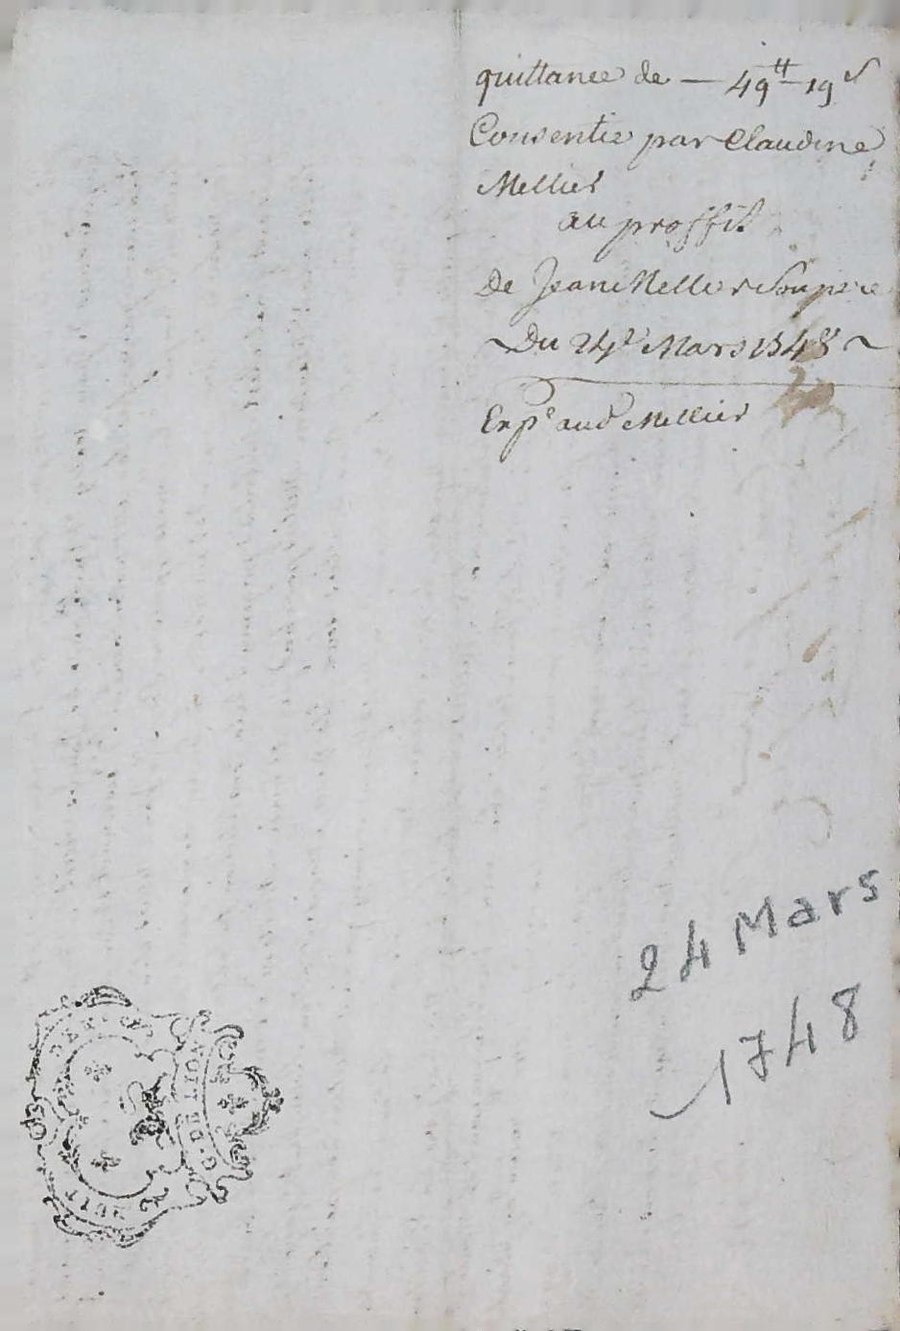 quittance de — 49ᵗᵗ 19ˢ
Consentie par Claudine
Mellier
au proffit
De Jean Mellier Son pere
~ Du 24ᵉ Mars 1748 ~
Expᵉ audᵗ Mellier
24 Mars
1748